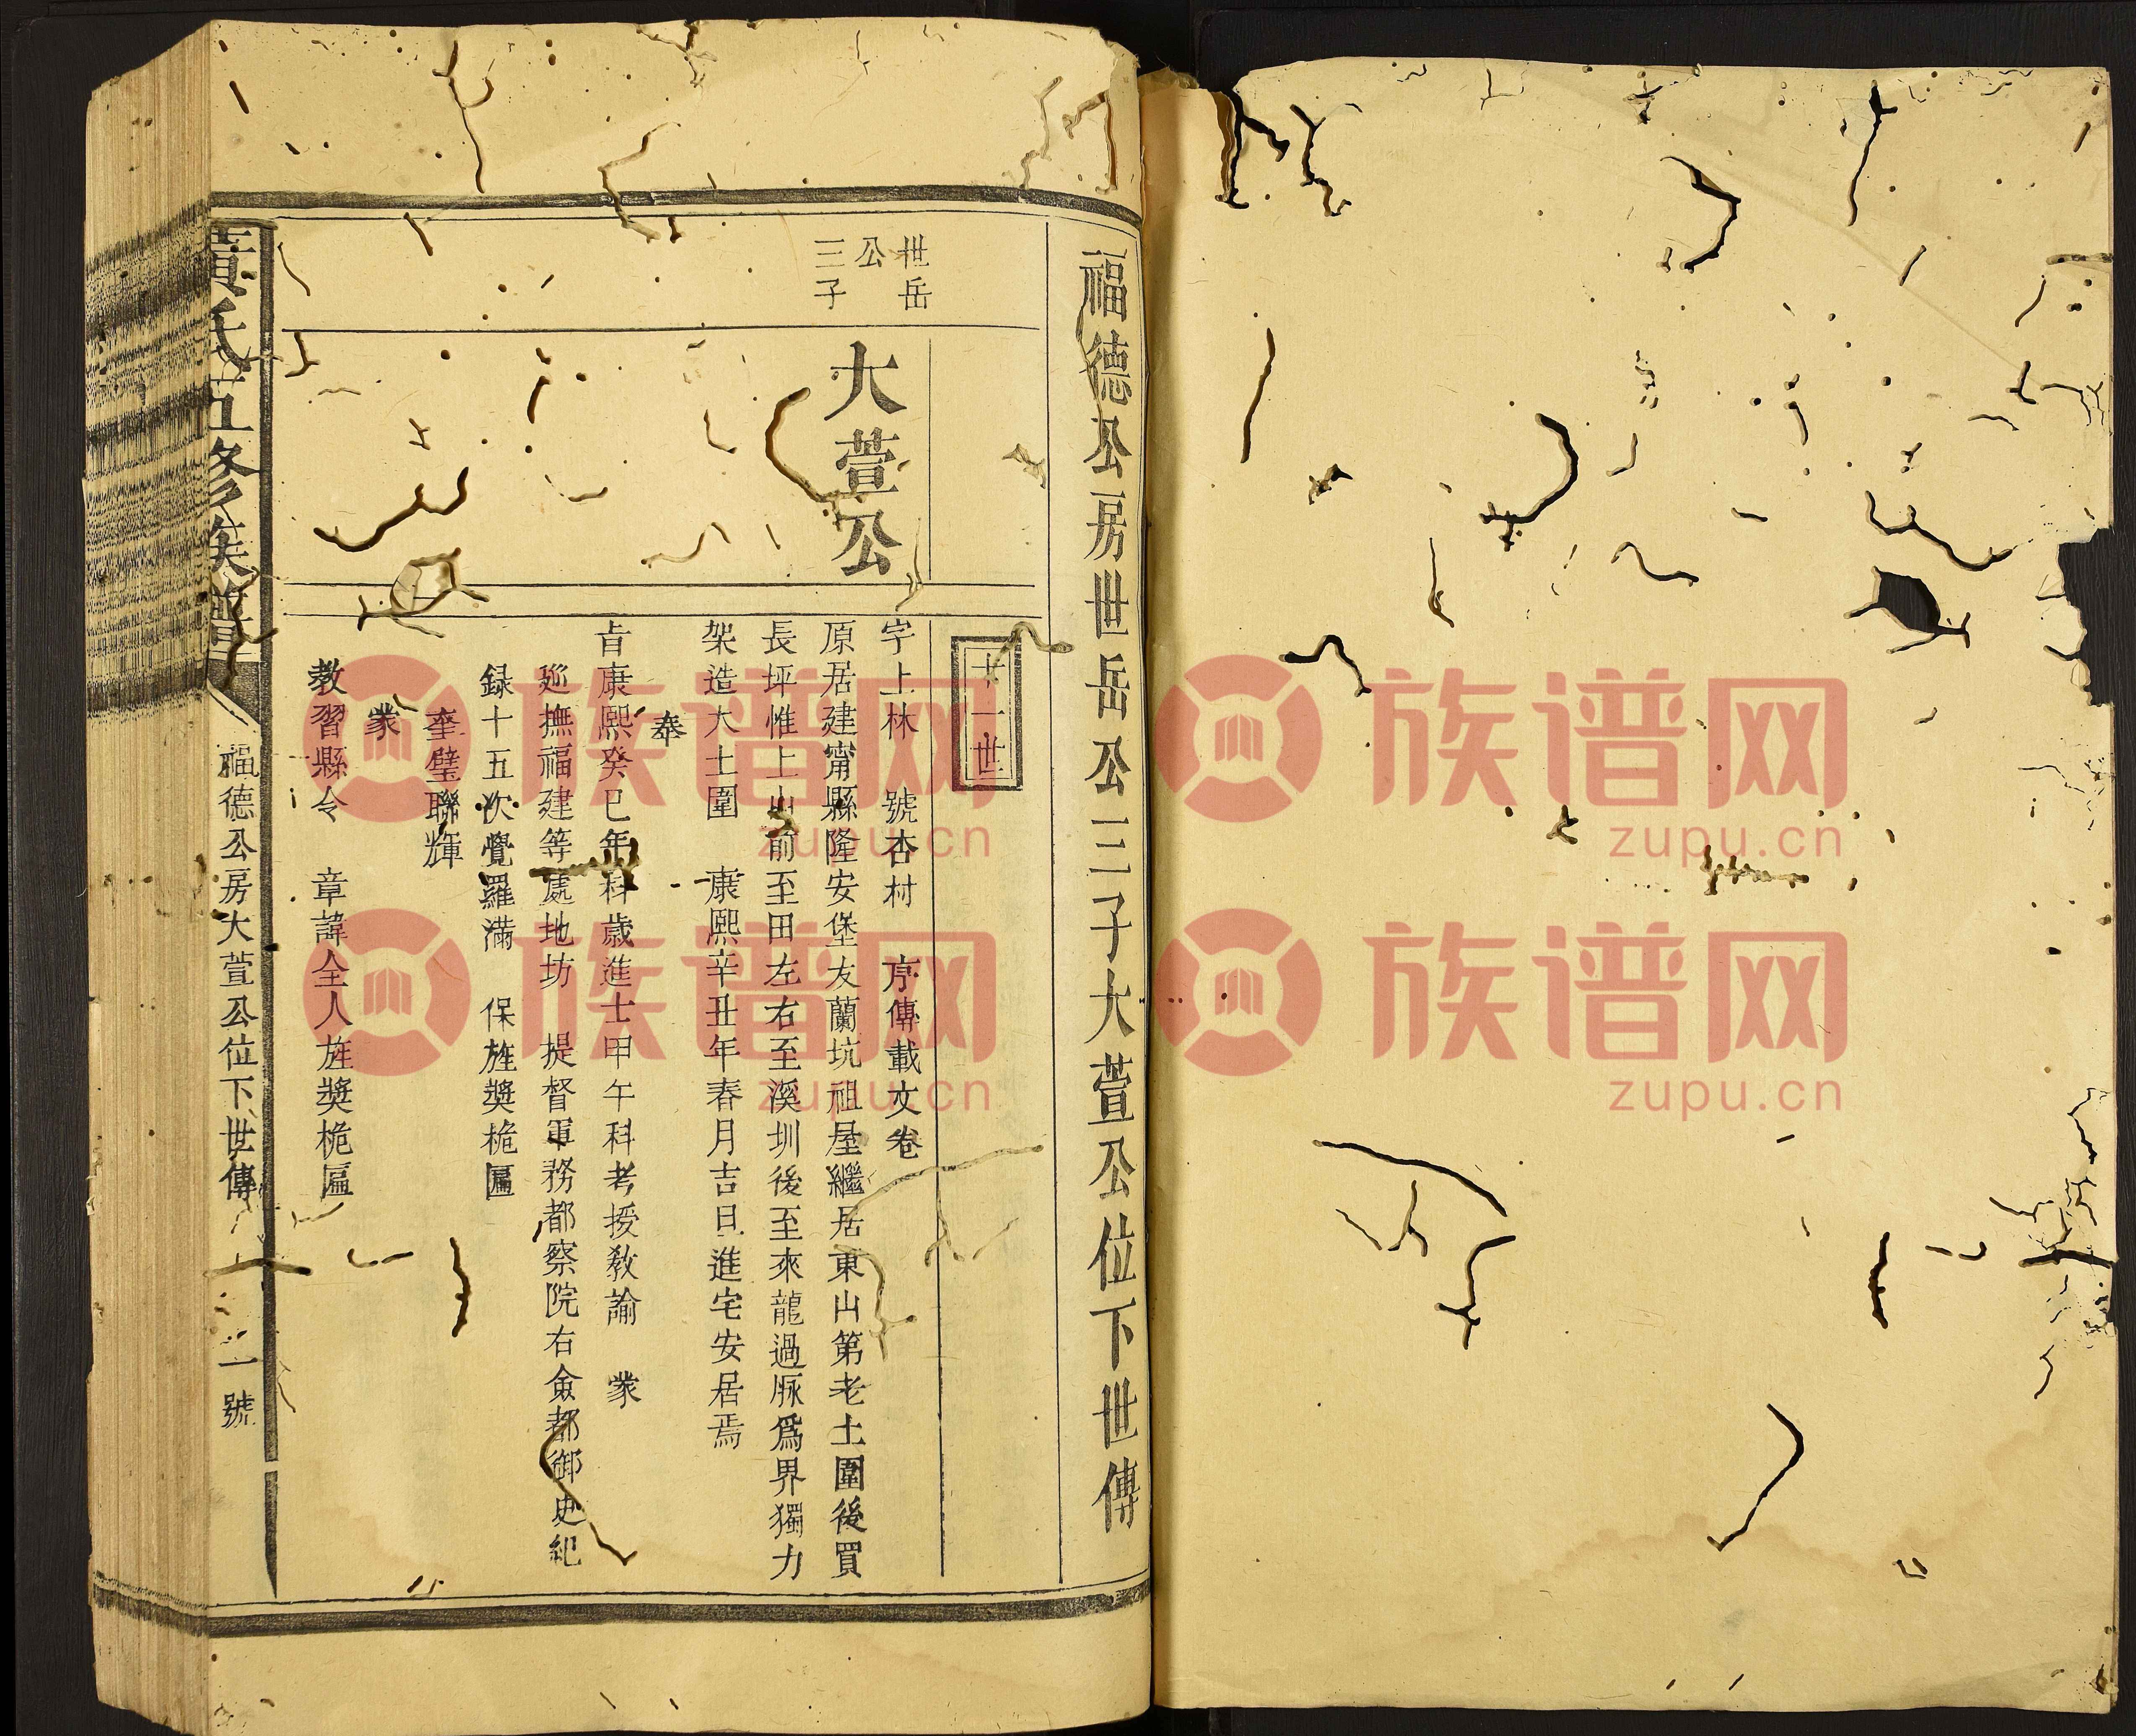 福德公房世岳公三子大萱公位下世傳
十一世
世岳
公
三子
大萱公
字上林　號杏村　序傳載文卷
原居建甯縣隆安堡友蘭坑祖屋繼居東山第老土圍後買
長坪惟上山前至田左右至溪圳後至來龍過脈爲界獨力
架造大土圍　康熙辛丑年春月吉旦進宅安居焉
奉
旨康熙癸巳年科歲進士甲午科考授教諭　蒙
廵撫福建等處地坊　提督軍務都察院右僉都御史紀
錄十五次覺羅滿　保旌獎桅匾
奎璧聯輝
蒙
教習縣令　章諱全人旌獎桅匾
黃氏五修族譜
福德公房大萱公位下世傳
一號
族谱网
zupu.cn
族谱网
zupu.cn
族谱网
zupu.cn
族谱网
zupu.cn